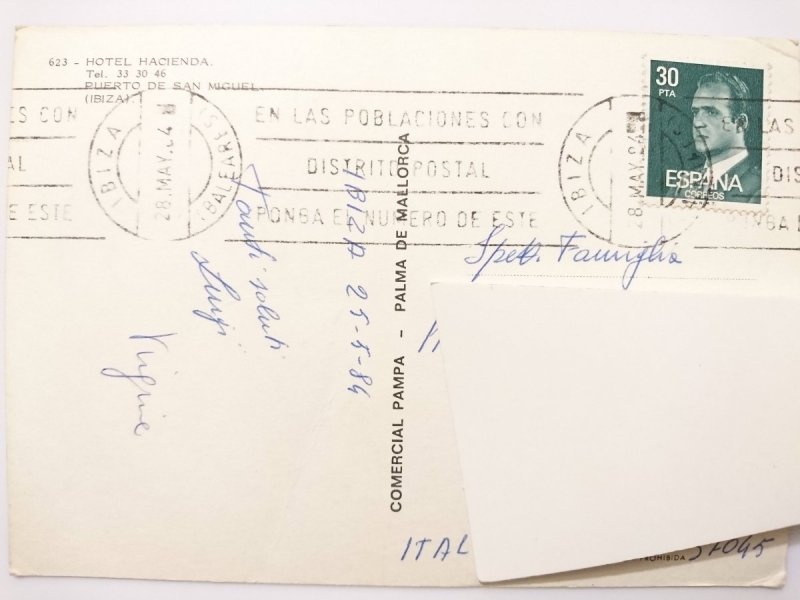 623 - HOTEL HACIENDA.
Tel. 33 30 46
PUERTO DE SAN MIGUEL
(IBIZA)
ES CON
AL
E ESTE
IBIZA
28.MAY.84
(BALEARES)
EN LAS POBLACIONES CON
DISTRITO POSTAL
PONGA EL NUMERO DE ESTE
IBIZA
28.MAY.84
30
PTA
ESPAÑA
CORREOS
LAS
DIS
Tanti saluti
Luigi
Virginie
IBIZA 25-5-84
COMERCIAL PAMPA - PALMA DE MALLORCA
Spett. Famiglia
ITAL
PROHIBIDA
37045